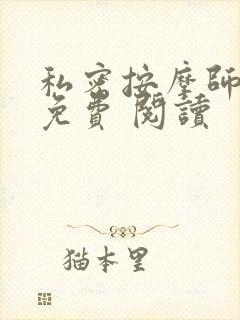 私密按摩師
免費閱讀
猫本里